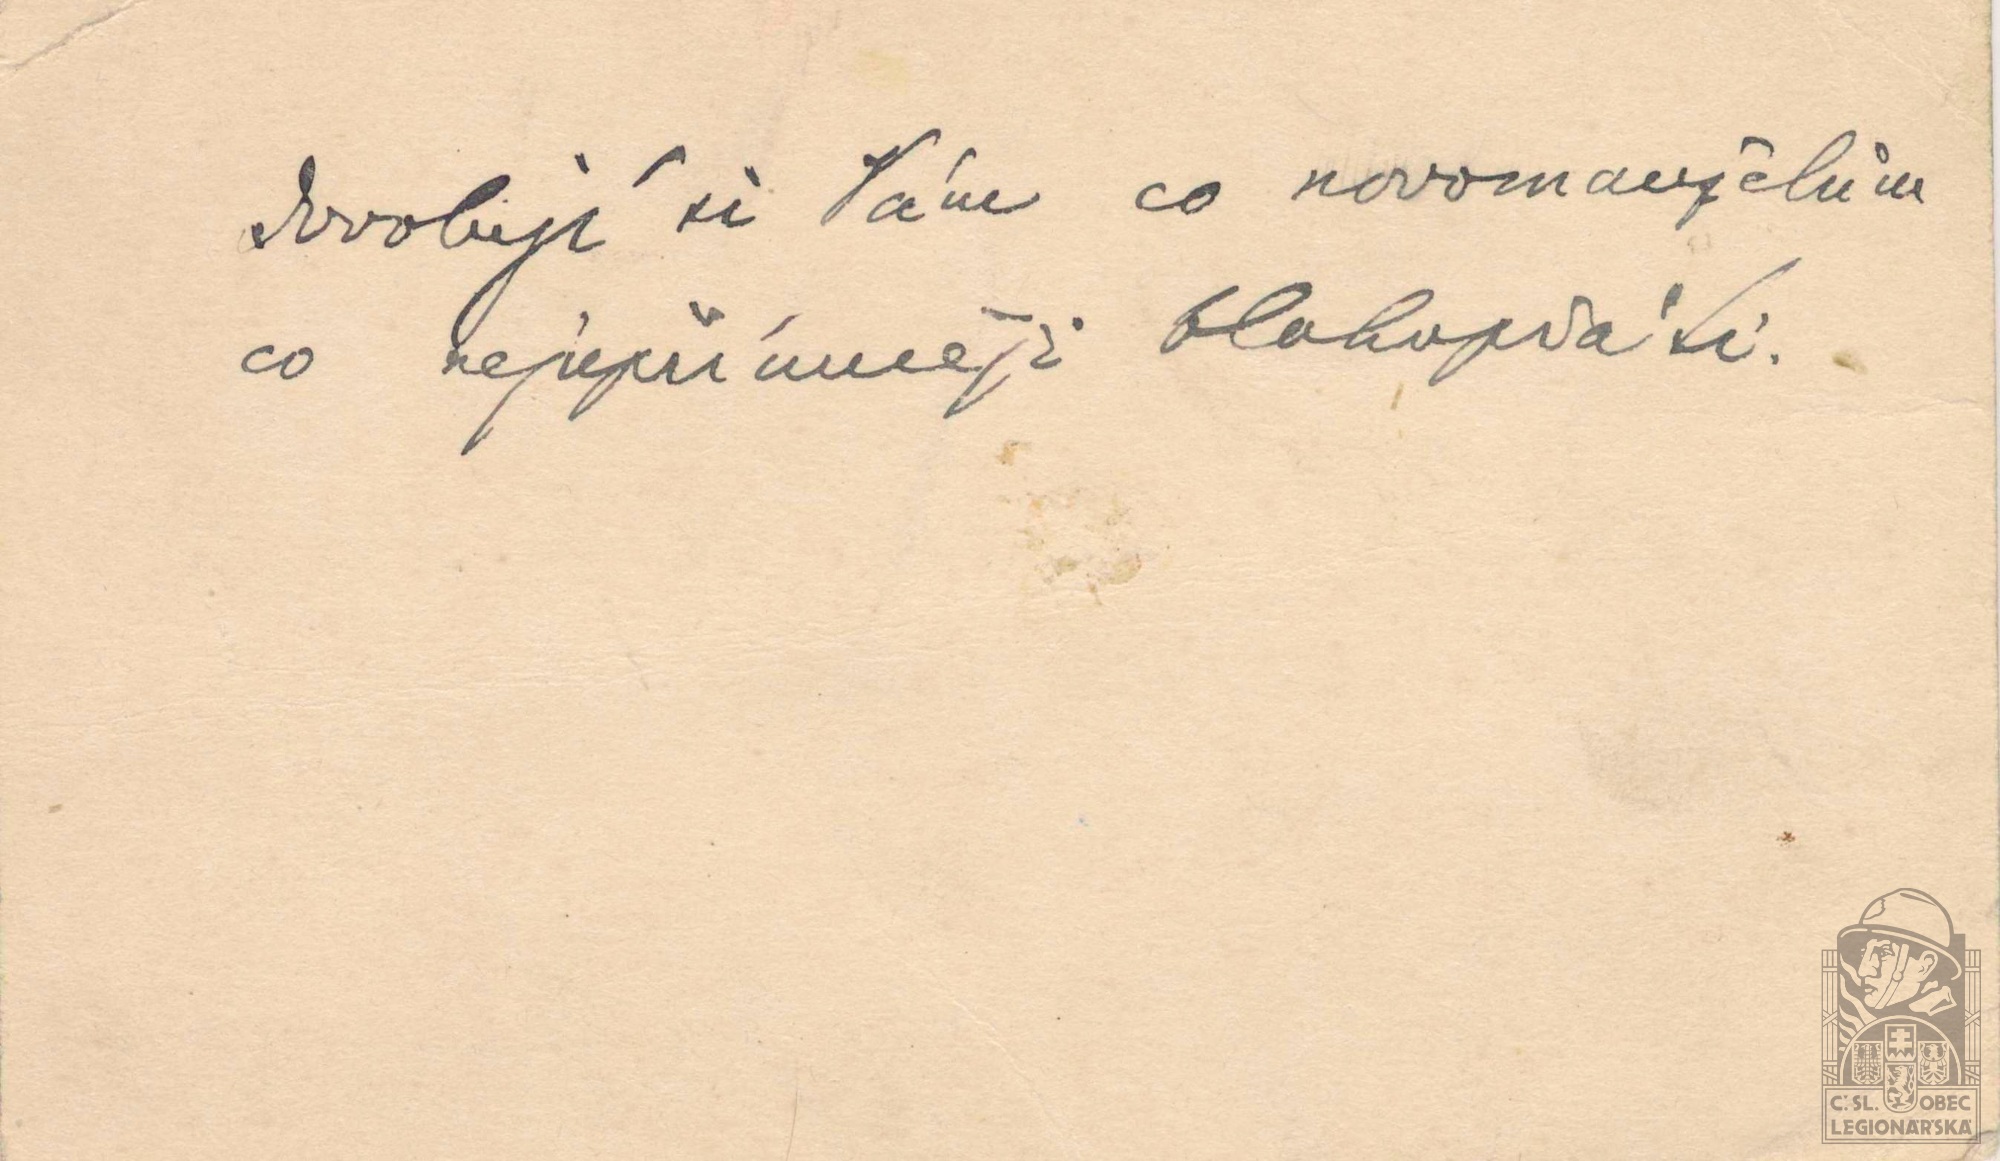 dovolují si Vám co novomanželům
co nejupřímněji blahopřáti.
Č.SL. OBEC
LEGIONÁŘSKÁ